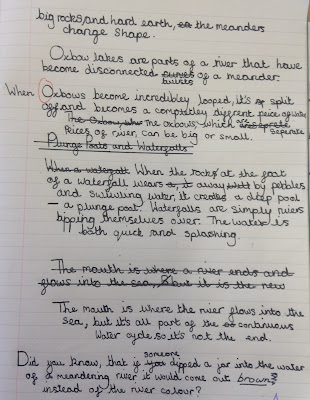 big rocks, and hard earth, so the meanders
change shape.
Oxbow lakes are parts of a river that have
become disconnected curves of a meander.
builts
When Oxbows become incredibley looped, it's split
off, and becomes a completley diferent peice of water
The Oxbow, The oxbows, which are seperete
Peices of river, can be big or small. seperete
Plunge Pools and Waterfalls
When a waterfall When the rocks at the foot
of a waterfall wears away by pebbles
and swirling water, it creates a deep pool
- a plunge pool. Waterfalls are simply rivers
tipping themselves over. The water is
both quick and splashing.
The mouth is where a river ends and
flows into the sea, but it is the new
The mouth is where the river flows into the
sea, but it's all part of the continuous
water cycle so it's not the end.
someone
Did you know, that if you dipped a jar into the water
of a meandering river it would come out brown
instead of the river colour?